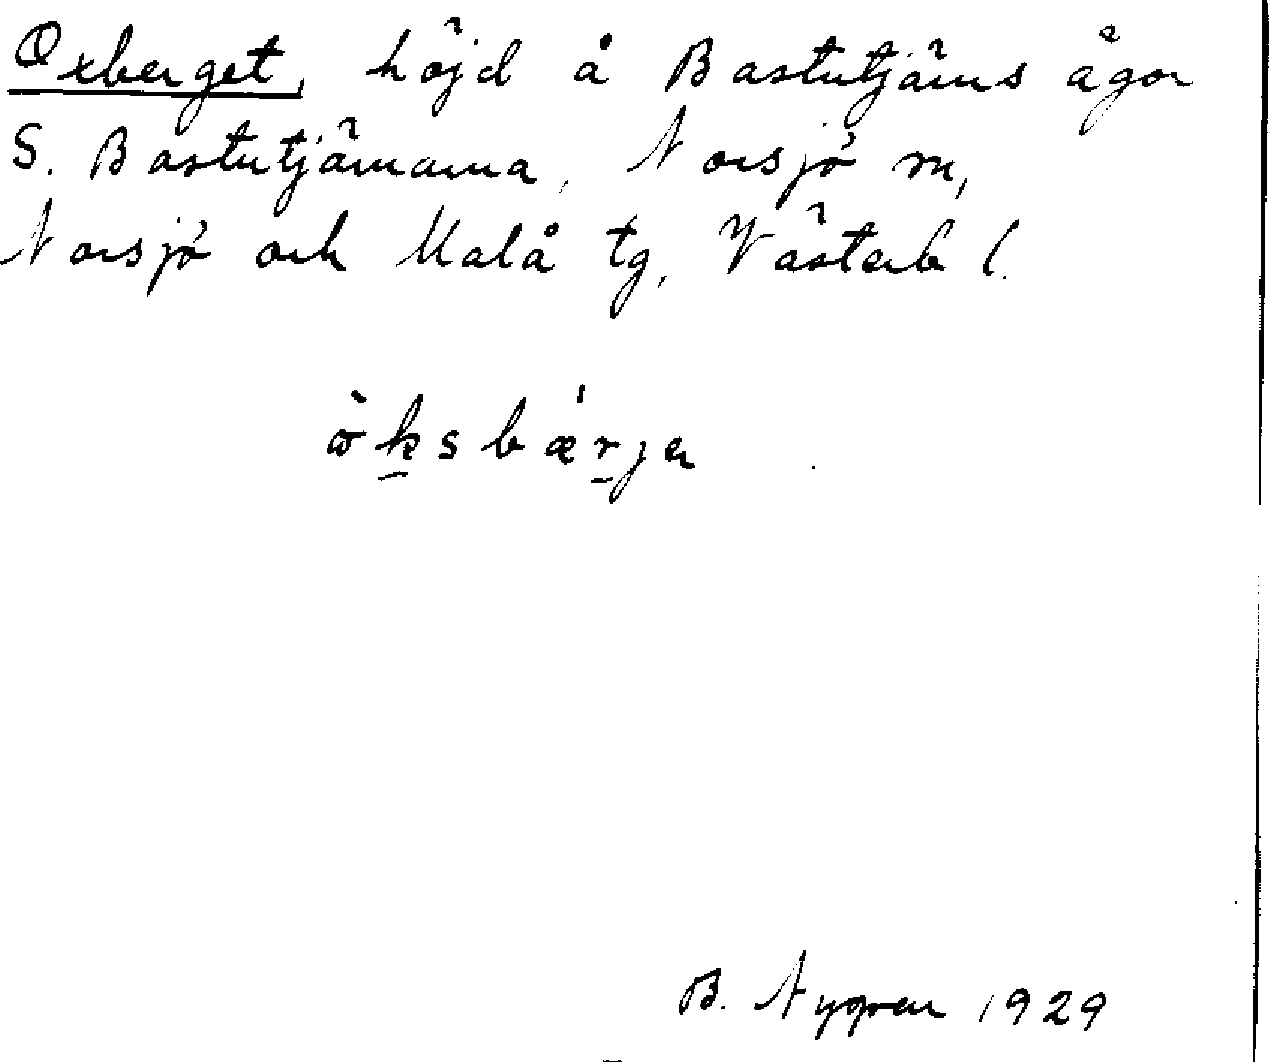 Oxberget, höjd å Bastutjärns ägor
S. Bastutjärnarna, Norsjö sn,
Norsjö och Malå tg, Västerb l.
ö̀ksbǽrjer
B. Nygren 1929